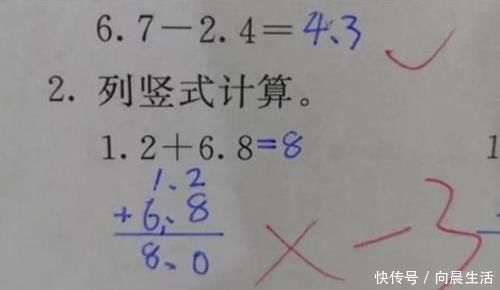 6.7－2.4＝4.3
2. 列竖式计算。
1.2＋6.8=8
1
1.2
+6.8
8.0
-3
快传号／向晨生活